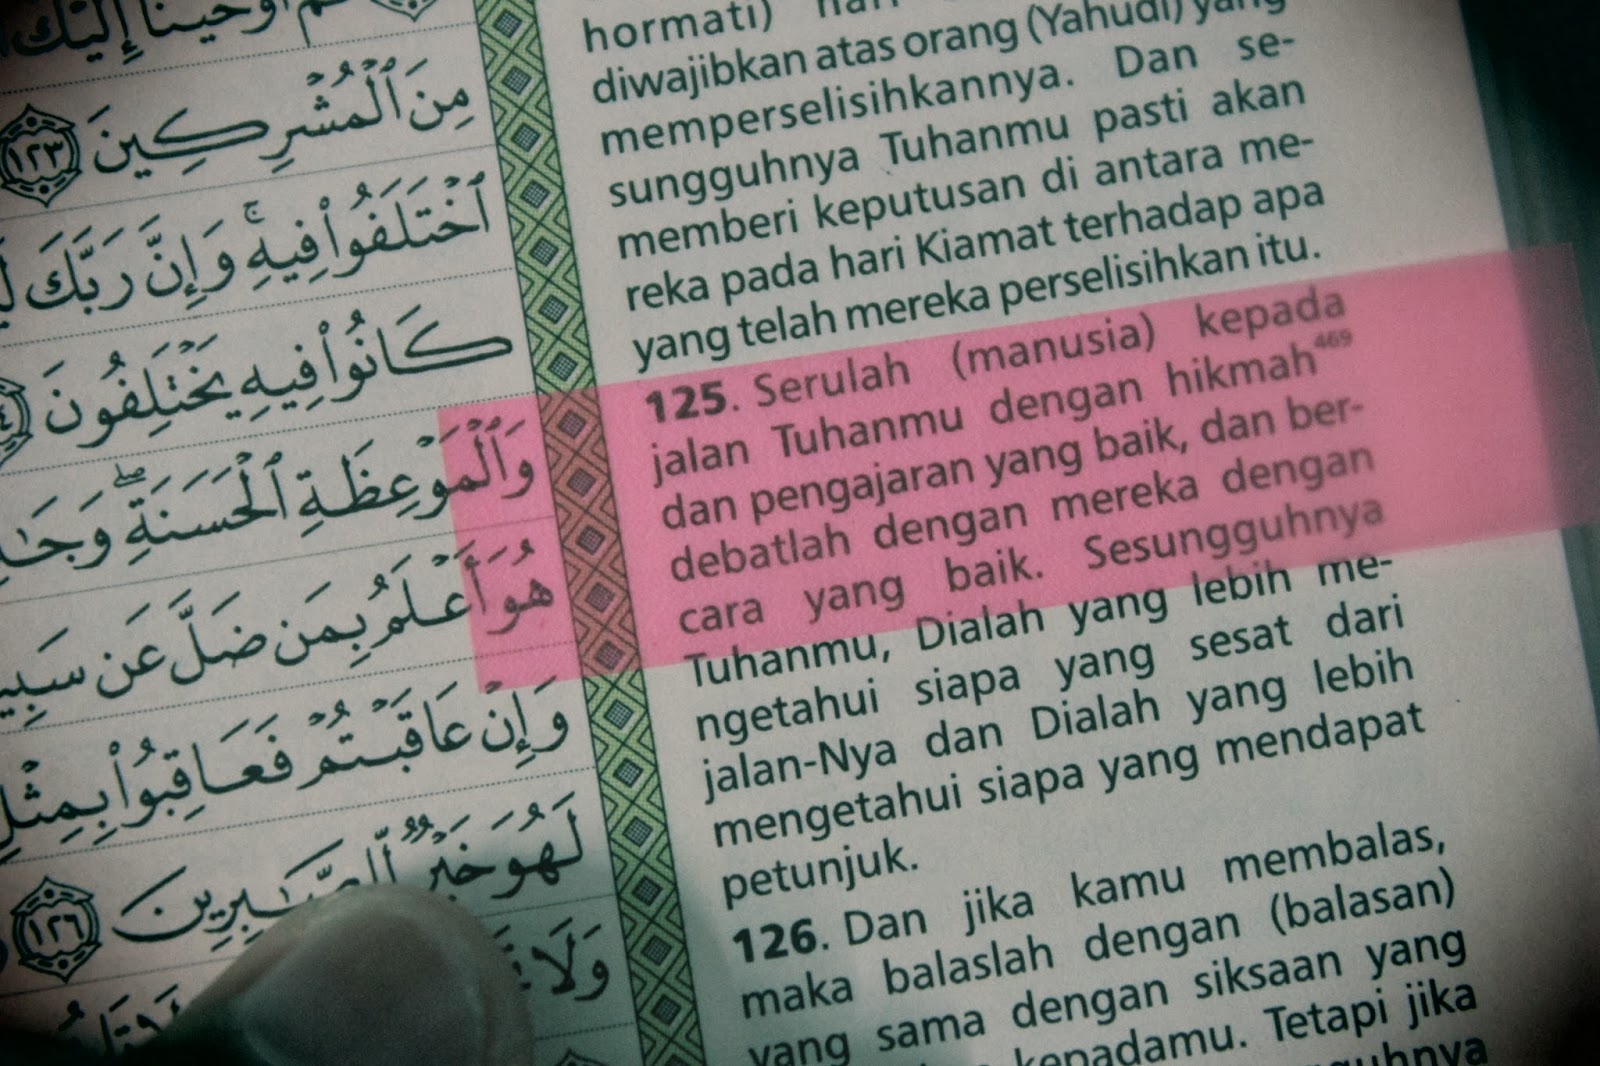 أوحينا إليك
مِنَ ٱلْمُشْرِكِينَ ١٢٣
ٱخْتَلَفُوا۟ فِيهِ ۚ وَإِنَّ رَبَّكَ
كَانُوا۟ فِيهِ يَخْتَلِفُونَ
وَٱلْمَوْعِظَةِ ٱلْحَسَنَةِ ۖ
هُوَ أَعْلَمُ بِمَن ضَلَّ عَن
وَإِنْ عَاقَبْتُمْ فَعَاقِبُوا۟ بِمِثْلِ
لَهُوَ خَيْرٌ لِّلصَّـٰبِرِينَ ١٢٦
وَلَا
hormati)
diwajibkan atas orang (Yahudi) yang
memperselisihkannya. Dan se-
sungguhnya Tuhanmu pasti akan
memberi keputusan di antara me-
reka pada hari Kiamat terhadap apa
yang telah mereka perselisihkan itu.
125. Serulah (manusia) kepada
jalan Tuhanmu dengan hikmah469
dan pengajaran yang baik, dan ber-
debatlah dengan mereka dengan
cara yang baik. Sesungguhnya
Tuhanmu, Dialah yang lebih me-
ngetahui siapa yang sesat dari
jalan-Nya dan Dialah yang lebih
mengetahui siapa yang mendapat
petunjuk.
126. Dan jika kamu membalas,
maka balaslah dengan (balasan)
yang sama dengan siksaan yang
kepadamu. Tetapi jika